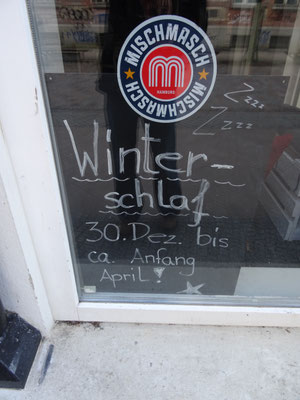 MISCHMASCH
HAMBURG
MISCHMASCH
Zzzz
Zzzz
Winter-
schlaf
30. Dez. bis
ca. Anfang
April!